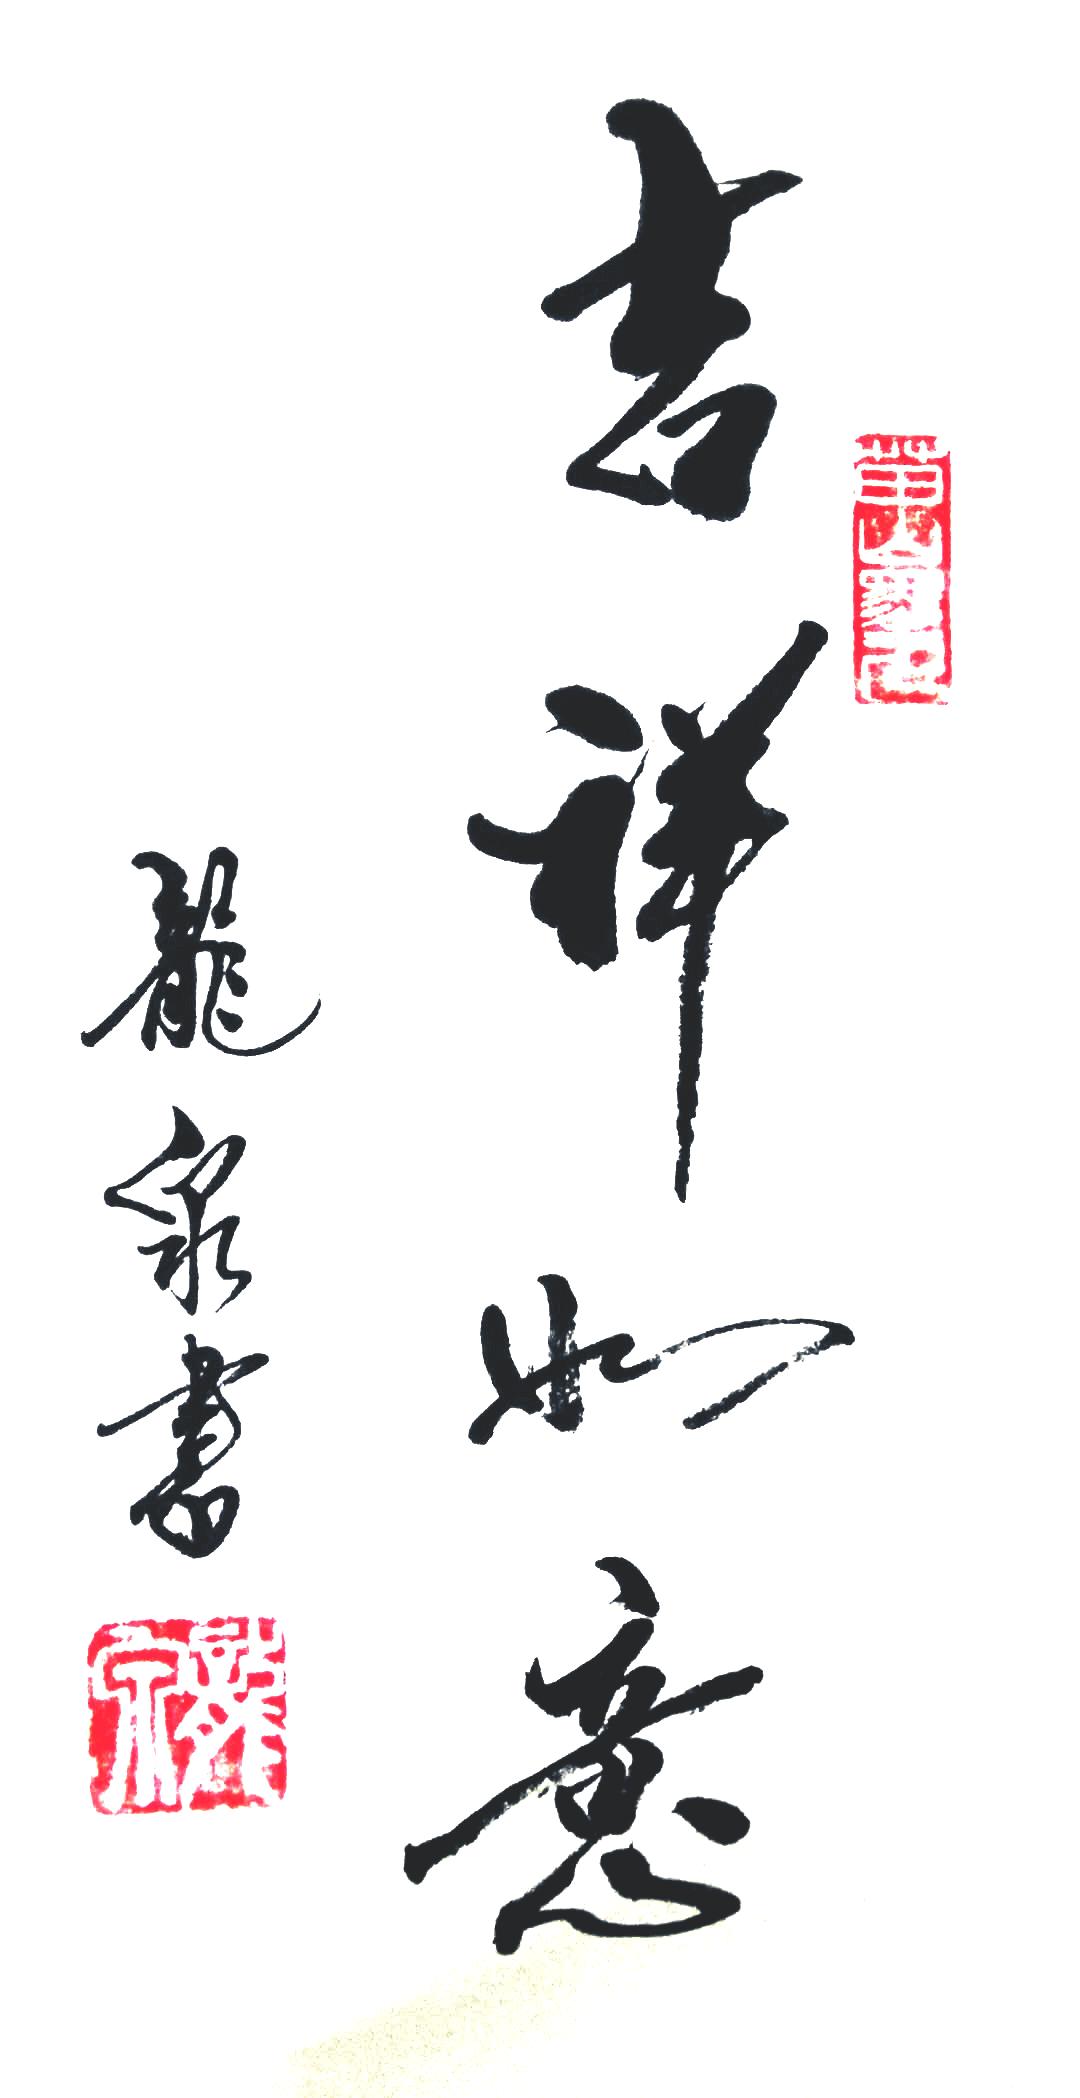 吉祥如意
龍泉書